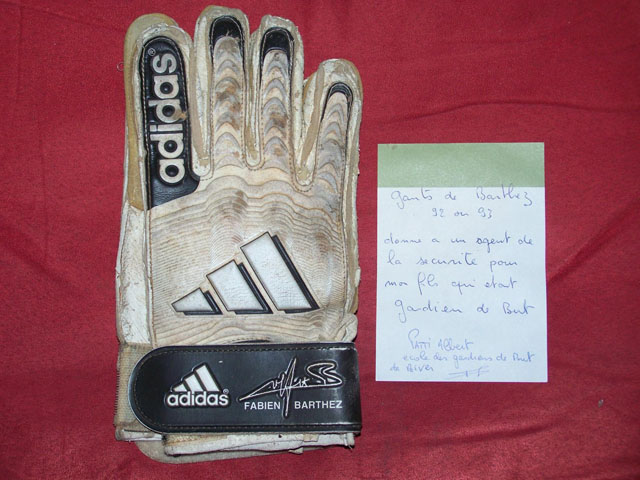 adidas
adidas
FABIEN BARTHEZ
gants de Barthez
92 ou 93
donne a un agent de
la securité pour
mon fils qui etait
gardien de But
PATTI Albert
ecole des gardiens de But
de